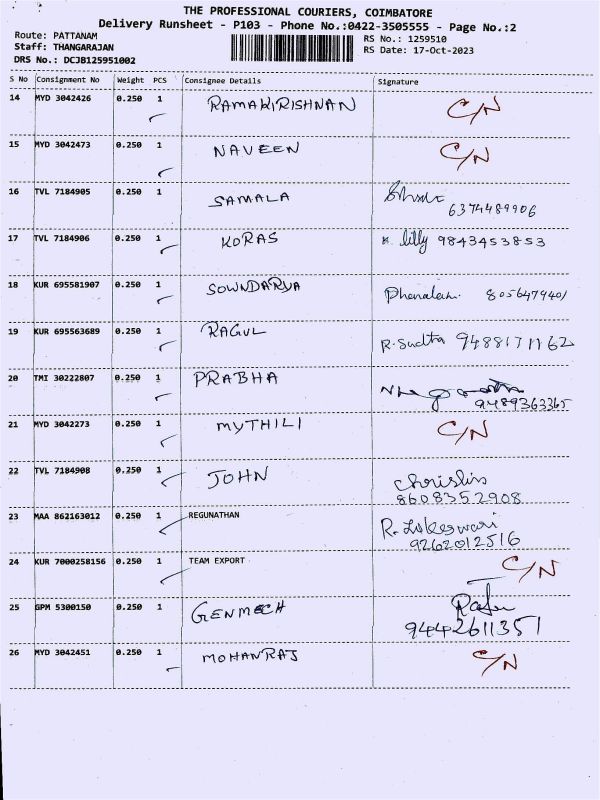 THE PROFESSIONAL COURIERS, COIMBATORE
Delivery Runsheet - P103 - Phone No.:0422-3505555 - Page No.:2
Route: PATTANAM RS No.: 1259510
Staff: THANGARAJAN RS Date: 17-Oct-2023
DRS No.: DCJB125951002
S No Consignment No Weight PCS Consignee Details Signature
14 MYD 3042426 0.250 1 RAMAKIRISHNAN C/N
15 MYD 3042473 0.250 1 NAVEEN C/N
16 TVL 7184905 0.250 1 SAMALA
6374489906
17 TVL 7184906 0.250 1 KORAS lilly 9843453853
18 KUR 695581907 0.250 1 SOWNDARYA 8056479401
19 KUR 695563689 0.250 1 RAGUL R. Sudha 9488171162
20 TMI 30222807 0.250 1 PRABHA
9489363365
21 MYD 3042273 0.250 1 MYTHILI C/N
22 TVL 7184908 0.250 1 JOHN
8608352908
23 MAA 862163012 0.250 1 REGUNATHAN R. Lokeswari
9262012516
24 KUR 7000258156 0.250 1 TEAM EXPORT C/N
25 GPM 5300150 0.250 1 GENMECH
9442611351
26 MYD 3042451 0.250 1 MOHANRAJ C/N